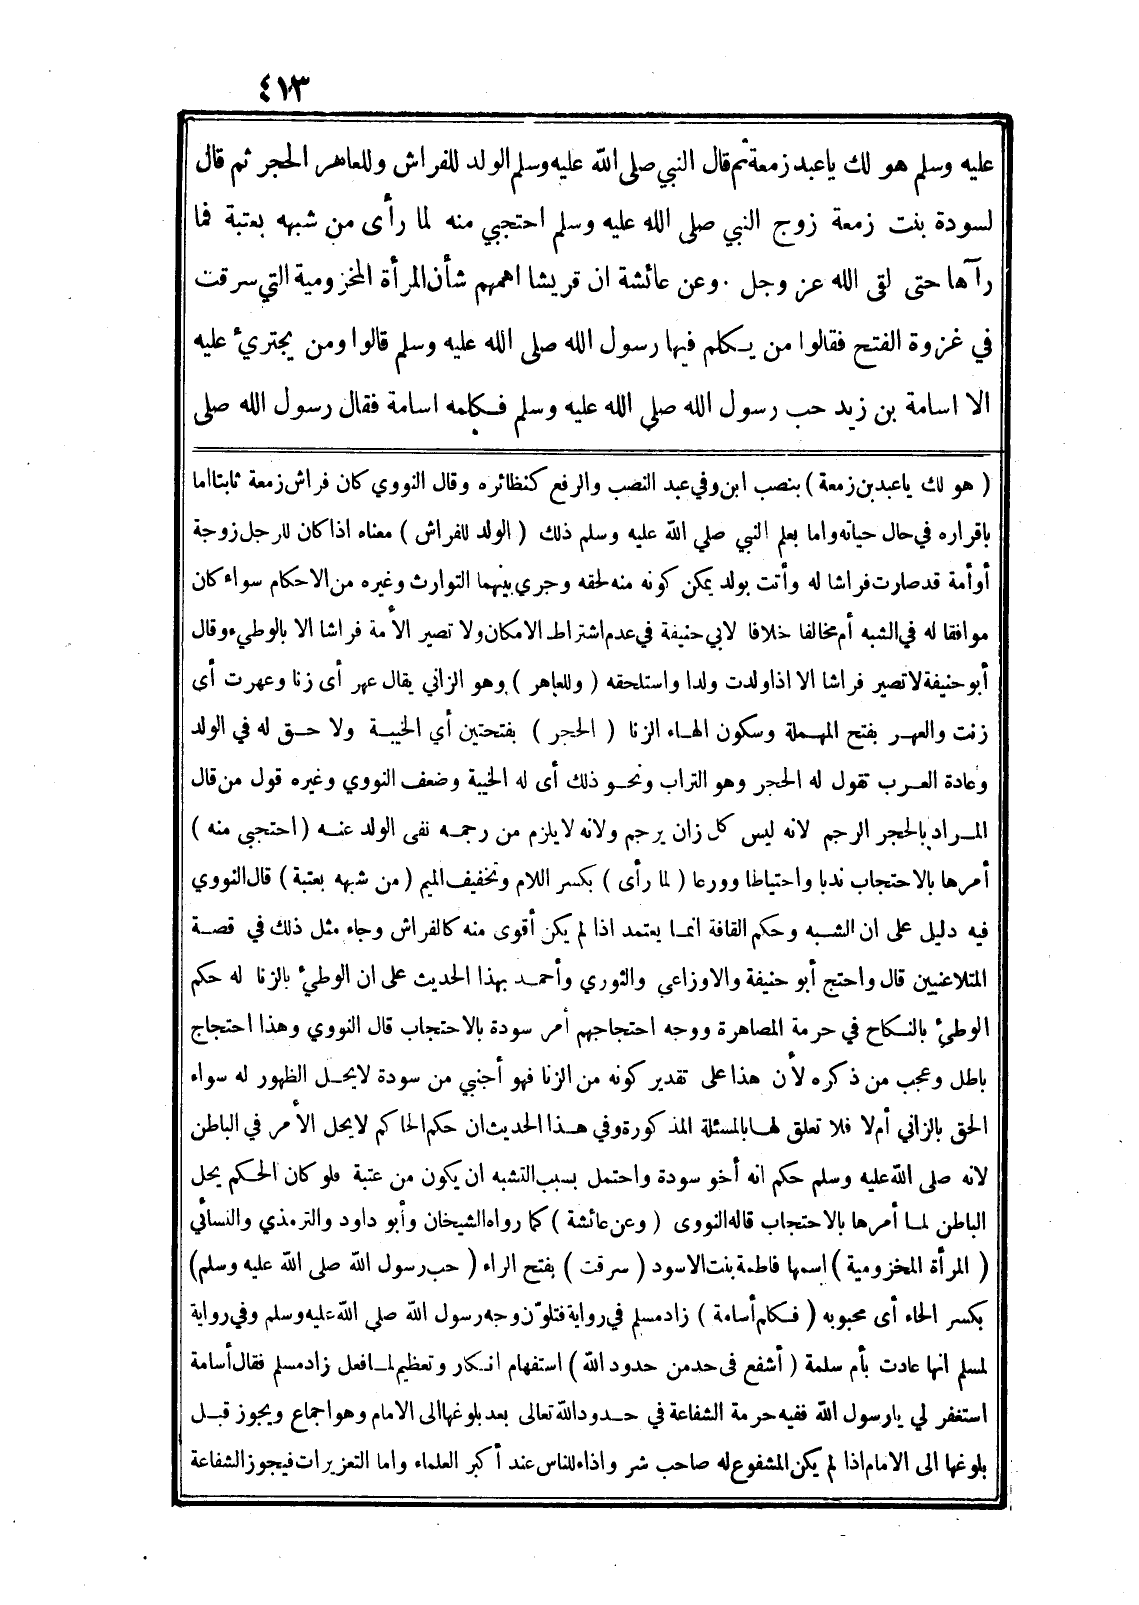 ٤١٣
عليه وسلم هو لك يا عبد زمعة ثم قال النبي صلى الله عليه وسلم الولد للفراش وللعاهر الحجر ثم قال
لسودة بنت زمعة زوج النبي صلى الله عليه وسلم احتجبي منه لما رأى من شبهه بعتبة فما
رآها حتى لقى الله عز وجل . وعن عائشة ان قريشا اهمهم شأن المرأة المخزومية التي سرقت
في غزوة الفتح فقالوا من يكلم فيها رسول الله صلى الله عليه وسلم قالوا ومن يجتريء عليه
الا اسامة بن زيد حب رسول الله صلى الله عليه وسلم فكلمه اسامة فقال رسول الله صلى
( هو لك يا عبد بن زمعة ) بنصب ابن وفي عبد النصب والرفع كنظائره وقال النووي كان فراش زمعة ثابتا اما
باقراره في حال حياته واما بعلم النبي صلى الله عليه وسلم ذلك ( الولد للفراش ) معناه اذا كان للرجل زوجة
أو أمة قد صارت فراشا له وأتت بولد يمكن كونه منه لحقه وجري بينهما التوارث وغيره من الاحكام سواء كان
موافقا له في الشبه أم مخالفا خلافا لابي حنيفة في عدم اشتراط الامكان ولا تصير الأمة فراشا الا بالوطيء وقال
أبو حنيفة لا تصير فراشا الا اذا ولدت ولدا واستلحقه ( وللعاهر ) وهو الزاني يقال عهر أى زنا وعهرت أى
زنت والعهر بفتح المهملة وسكون الهاء الزنا ( الحجر ) بفتحتين أي الخيبة ولا حق له في الولد
وعادة العرب تقول له الحجر وهو التراب ونحو ذلك أى له الخيبة وضعف النووي وغيره قول من قال
المراد بالحجر الرجم لانه ليس كل زان يرجم ولانه لا يلزم من رجمه نفى الولد عنه ( احتجبي منه )
أمرها بالاحتجاب ندبا واحتياطا وورعا ( لما رأى ) بكسر اللام وتخفيف الميم ( من شبهه بعتبة ) قال النووي
فيه دليل على ان الشبه وحكم القافة انما يعتمد اذا لم يكن أقوى منه كالفراش وجاء مثل ذلك في قصة
المتلاعنيين قال واحتج أبو حنيفة والاوزاعي والثوري وأحمد بهذا الحديث على ان الوطيء بالزنا له حكم
الوطيء بالنكاح في حرمة المصاهرة ووجه احتجاجهم أمر سودة بالاحتجاب قال النووي وهذا احتجاج
باطل وعجب من ذكره لأن هذا على تقدير كونه من الزنا فهو أجنبي من سودة لا يحل الظهور له سواء
الحق بالزاني أم لا فلا تعلق لها بالمسئلة المذكورة وفي هذا الحديث ان حكم الحاكم لا يحل الأمر في الباطن
لانه صلى الله عليه وسلم حكم انه أخو سودة واحتمل بسبب التشبه ان يكون من عتبة فلو كان الحكم يحل
الباطن لما أمرها بالاحتجاب قاله النووى ( وعن عائشة ) كما رواه الشيخان وأبو داود والترمذي والنسائي
( المرأة المخزومية ) اسمها فاطمة بنت الاسود ( سرقت ) بفتح الراء ( حب رسول الله صلى الله عليه وسلم)
بكسر الحاء أى محبوبه ( فكلم أسامة ) زاد مسلم في رواية فتلوّن وجه رسول الله صلى الله عليه وسلم وفي رواية
لمسلم انها عادت بأم سلمة ( أشفع فى حد من حدود الله ) استفهام انكار وتعظيم لما فعل زاد مسلم فقال أسامة
استغفر لي يا رسول الله ففيه حرمة الشفاعة في حدود الله تعالى بعد بلوغها الى الامام وهو اجماع ويجوز قبل
بلوغها الى الامام اذا لم يكن المشفوع له صاحب شر واذاء للناس عند أكبر العلماء واما التعزيرات فيجوز الشفاعة